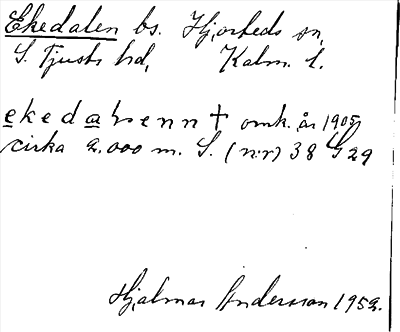 Ekedalen bs. Hjorteds sn,
S. Tjusts hd, Kalm. l.
ekedaḷenn † omk. år 1905
cirka 2.000 m. S. (nr) 38 G 29
Hjalmar Andersson 1952.